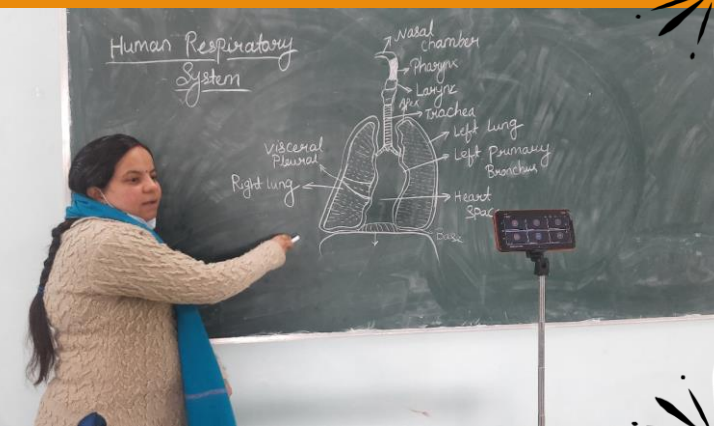 Human Respiratory
System
Nasal
Chamber
Pharynx
Larynx
Apex
Trachea
Left lung
Left Primary
Bronchus
Visceral
Pleural
Right lung
Heart
Spac
Base